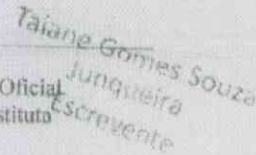 Taiane Gomes Souza
Junqueira
Escrevente
Oficial
stituto